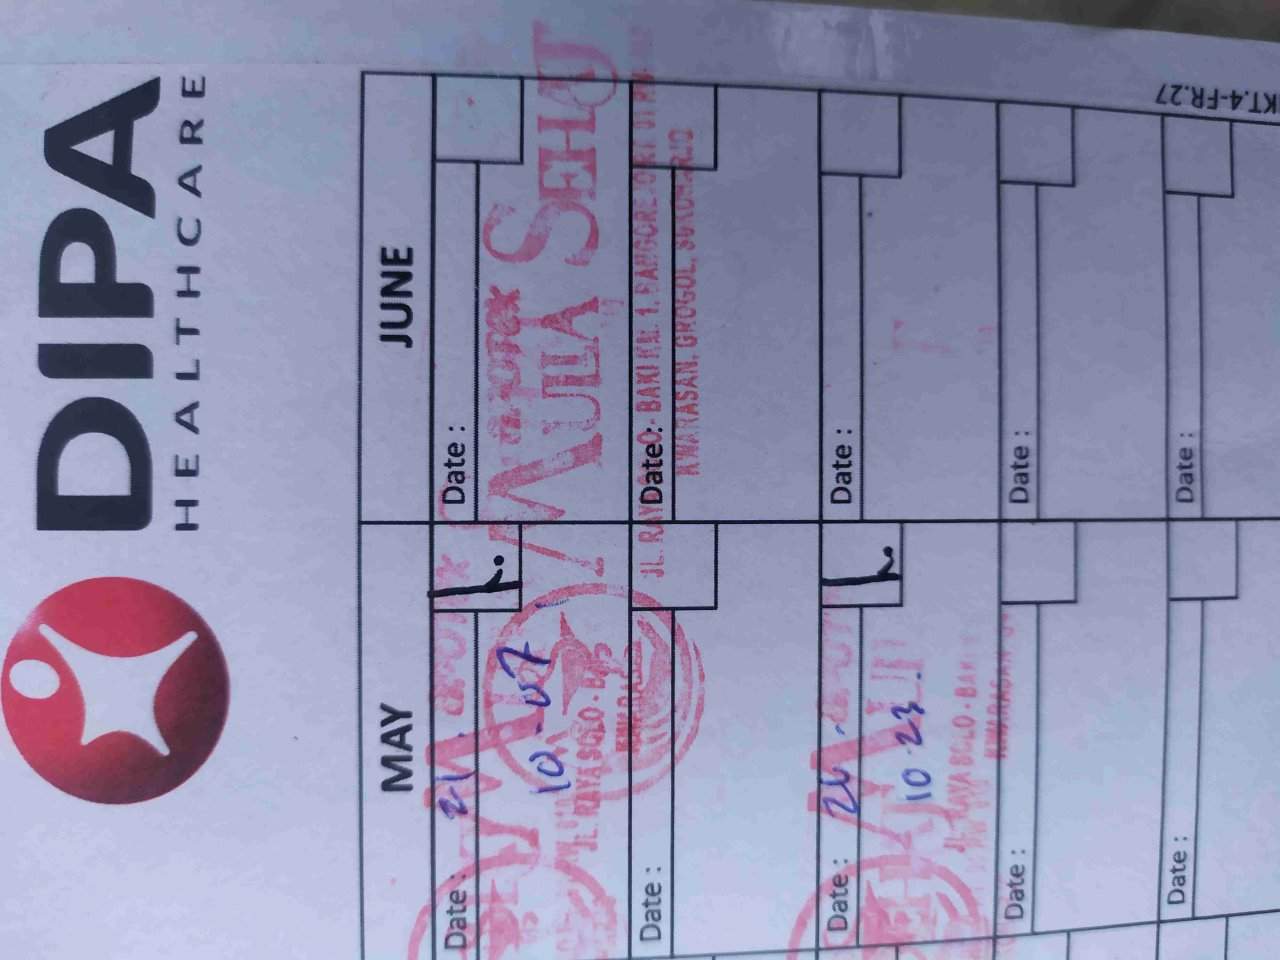 DIPA
HEALTHCARE
MAY
JUNE
Date : 21
Date :
10-07
apotek
MULIA SEHAT
JL. RAYA SOLO - BAKI
Date :
Date :
KWARASAN, GROGOL, SUKOHARJO
Date : 26
Date :
10.23.
JL. RAYA SOLO - BAKI
KWARASAN
Date :
Date :
Date :
Date :
KT.4-FR.27